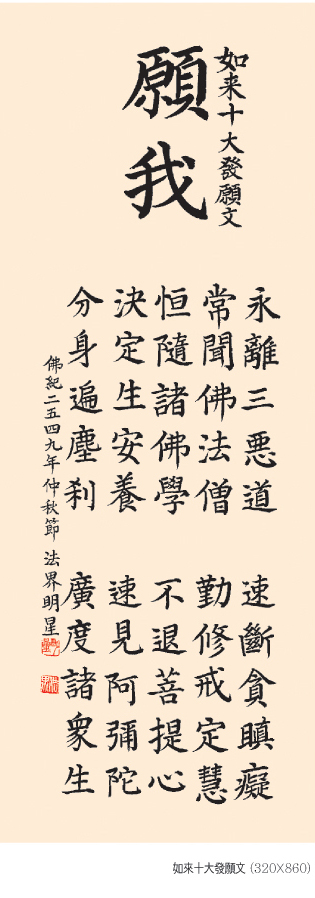 如来十大發願文
願我
永離三惡道 速斷貪瞋癡
常聞佛法僧 勤修戒定慧
恒隨諸佛學 不退菩提心
決定生安養 速見阿彌陀
分身遍塵刹 廣度諸衆生
佛紀二五四九年仲秋節 法界明星
如來十大發願文 (320X860)